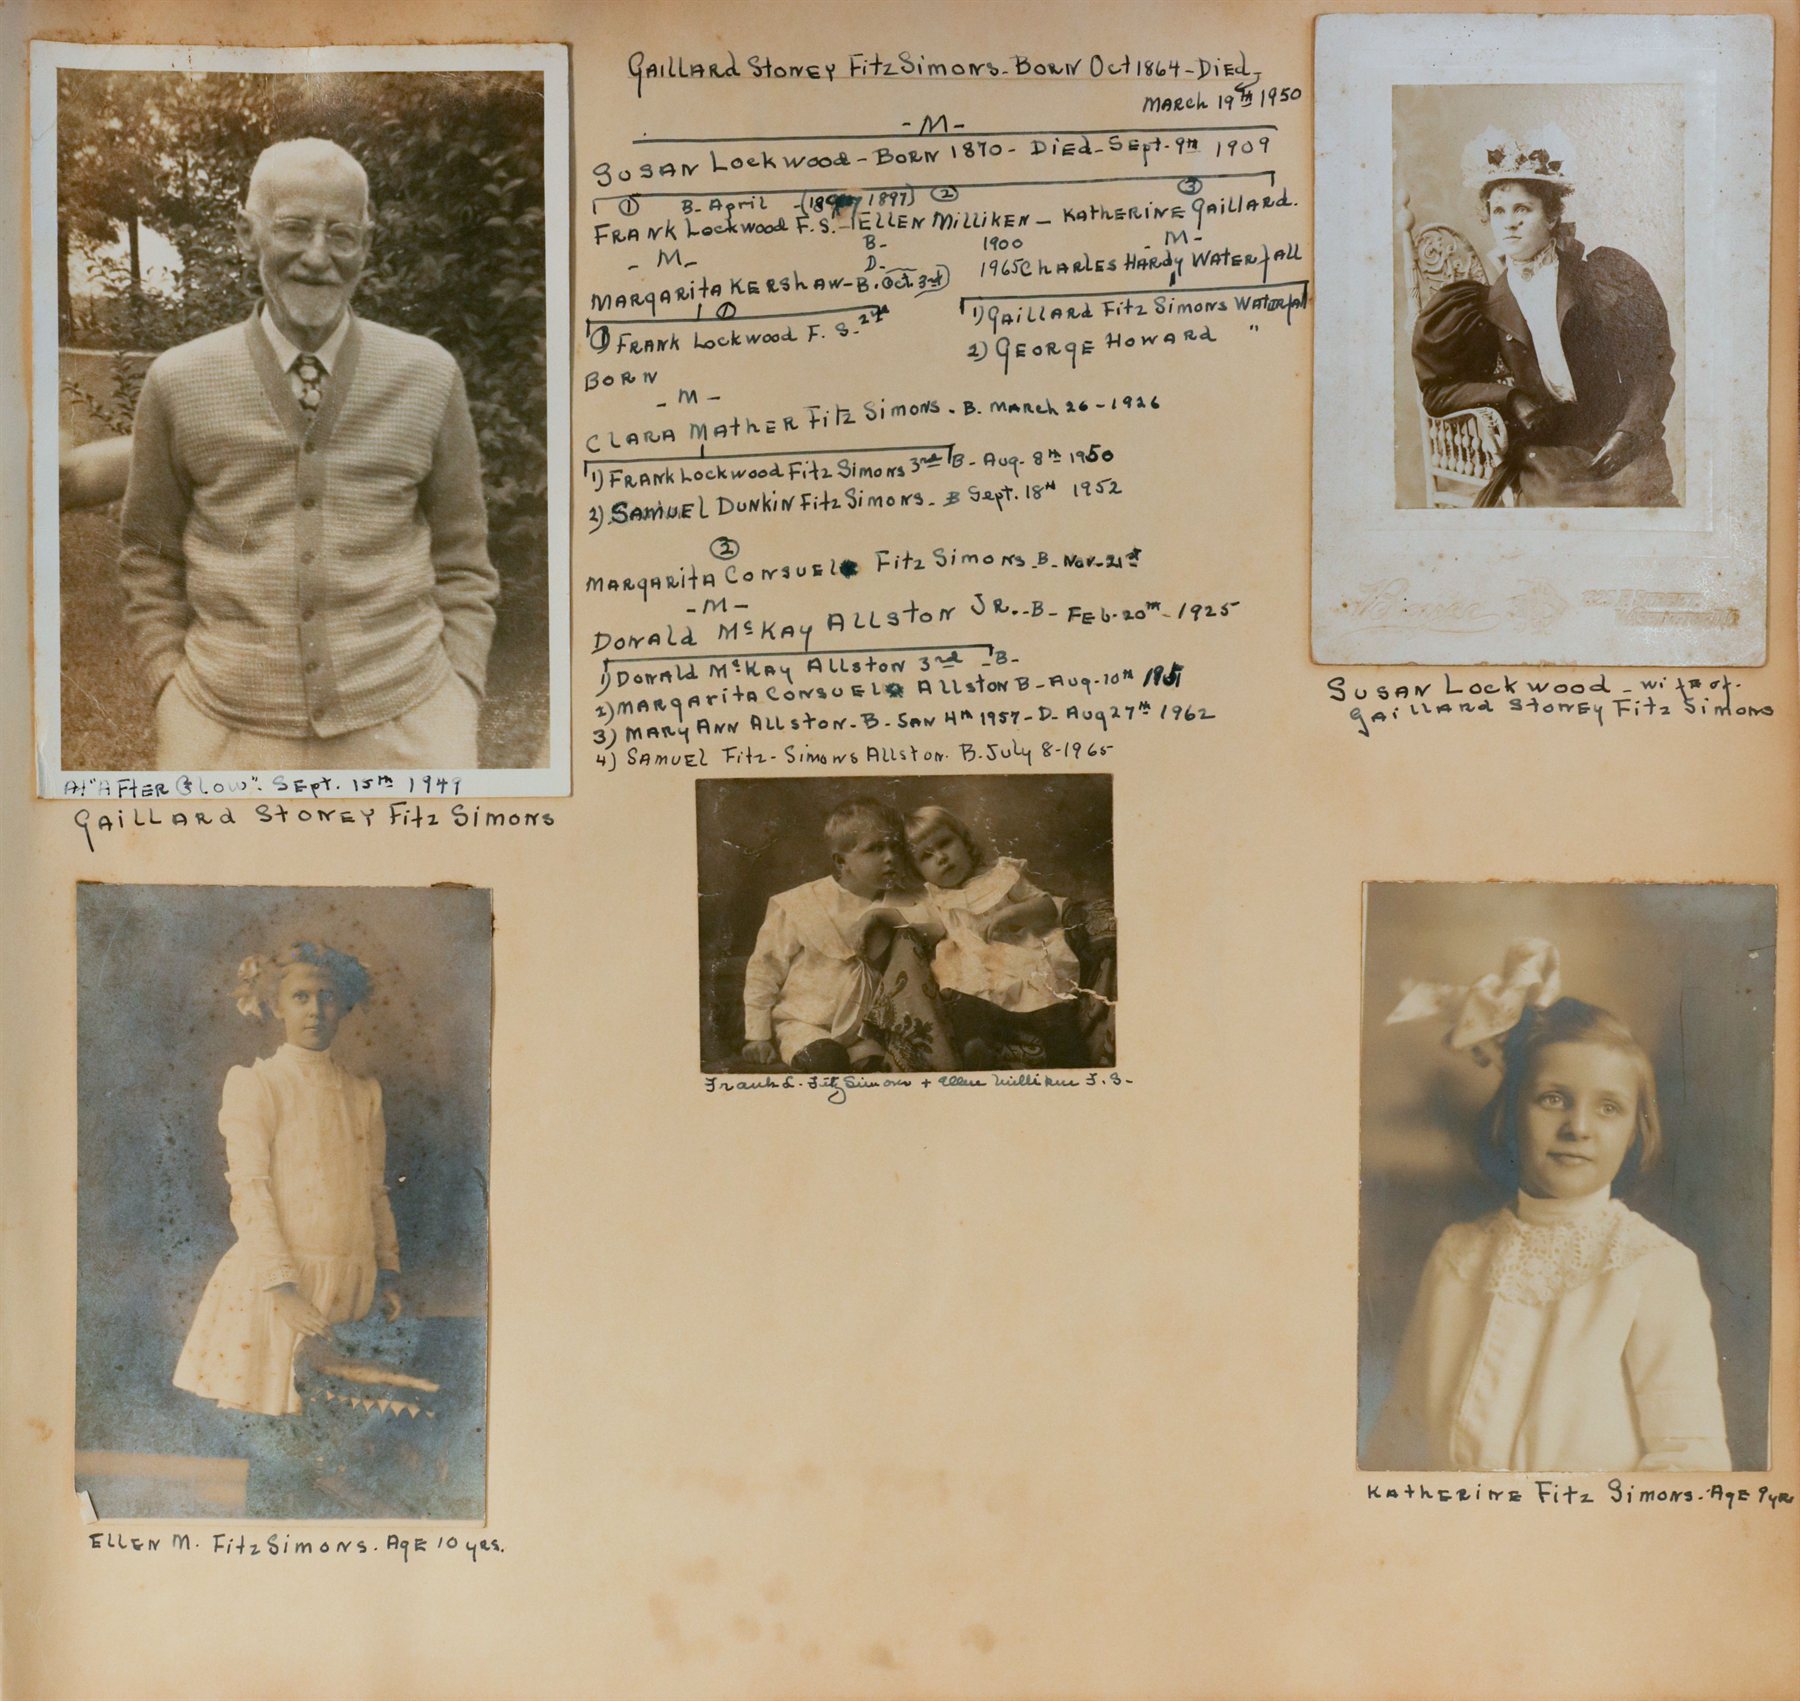 Gaillard Stoney FitzSimons - Born Oct 1864 - Died,
March 19th 1950
- M -
Susan Lockwood - Born 1870 - Died - Sept. 9th 1909
① B. April (1897) ② ③
Frank Lockwood F. S. - Ellen Milliken - Katherine Gaillard.
- M - B - 1900 - M -
D - 1965 Charles Hardy Waterfall
Margarita Kershaw - B. Oct 3rd
①
1) Frank Lockwood F. S. 2nd
Born
- M -
Clara Mather Fitz Simons - B. March 26 - 1926
1) Frank Lockwood Fitz Simons 3rd B - Aug - 8th 1950
2) Samuel Dunkin Fitz Simons - B Sept. 18th 1952
1) Gaillard Fitz Simons Waterfall
2) George Howard "
②
Margarita Consuelo Fitz Simons - B - Nov - 21st
- M -
Donald McKay Allston Jr. - B - Feb - 20th - 1925
1) Donald McKay Allston 3rd - B -
2) Margarita Consuelo Allston B - Aug - 10th 1951
3) Mary Ann Allston - B - San 4th 1957 - D - Aug 27th 1962
4) Samuel Fitz - Simons Allston. B. July 8 - 1965
At "After Glow". Sept. 15th 1949
Gaillard Stoney Fitz Simons
Susan Lockwood - wife of.
Gaillard Stoney Fitz Simons
Frank L. FitzSimons + Ellen Milliken F. S -
Ellen M. FitzSimons. Age 10 yrs.
Katherine Fitz Simons. Age 9 yr